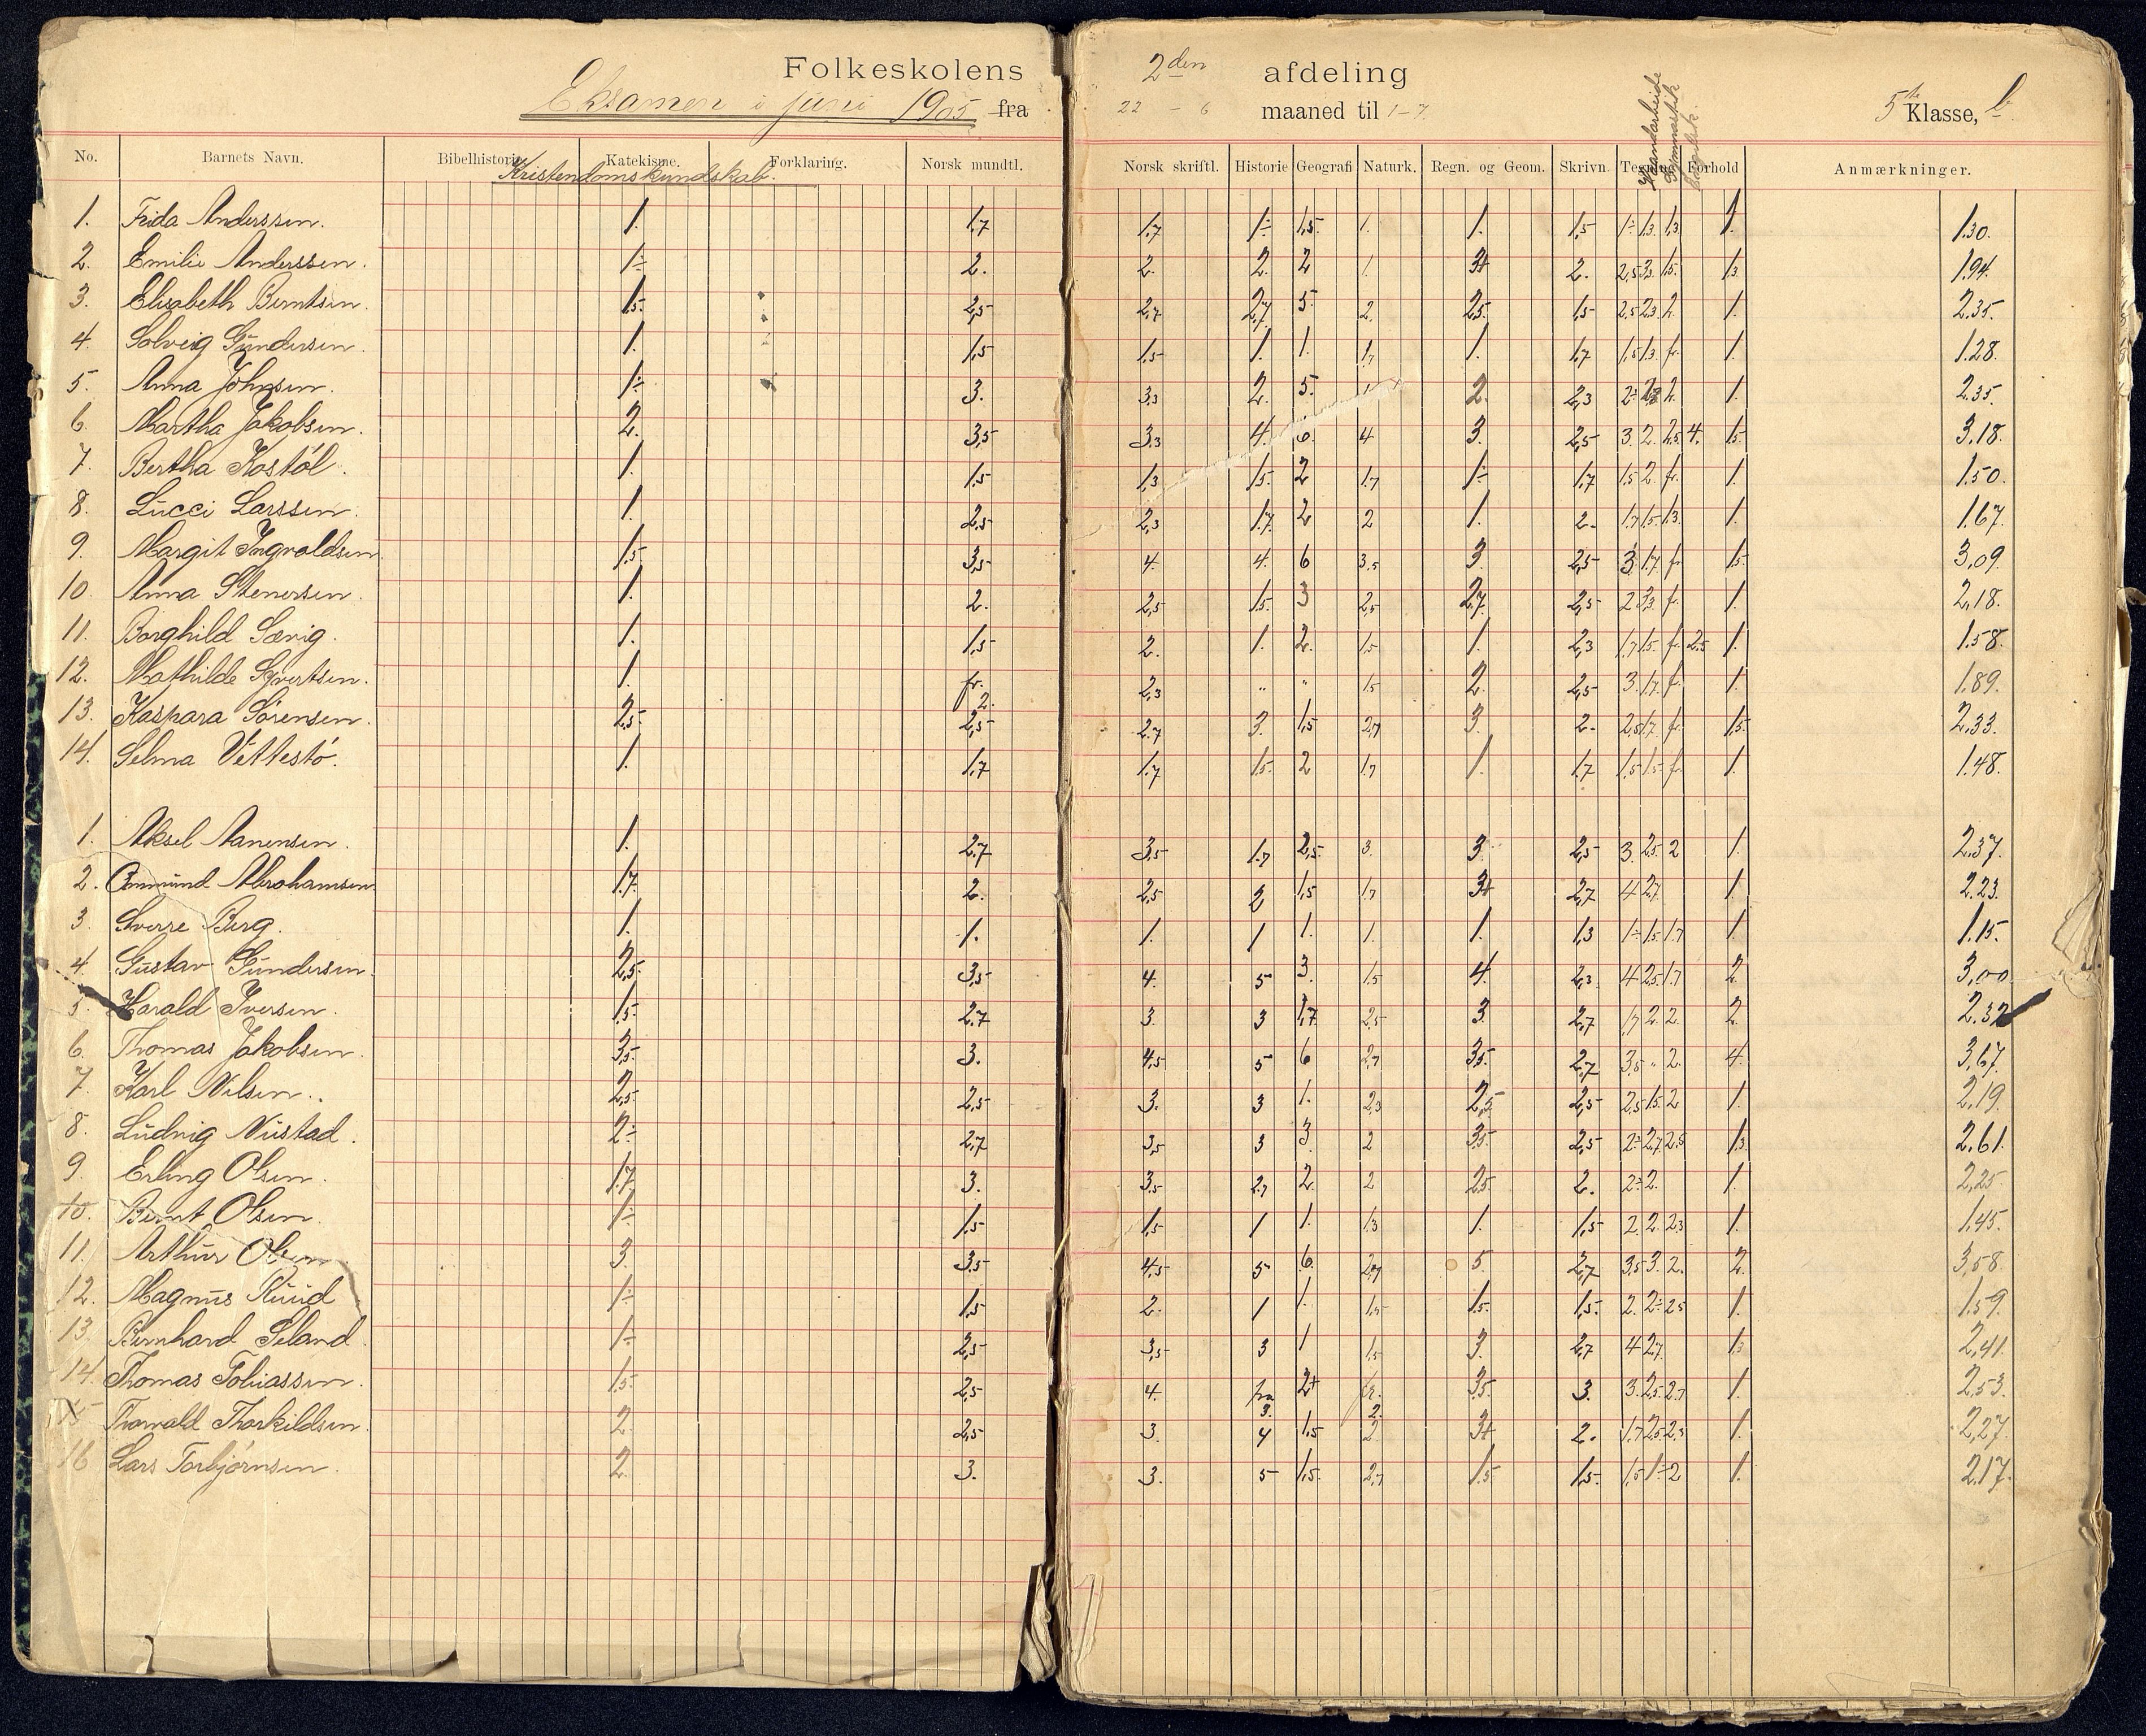 Folkeskolens 2den afdeling
Eksamen i juni 1905 fra 22 - 6 maaned til 1-7 5te Klasse, b
Haandarbeide Gymnastik
No. Barnets Navn. Bibelhistorie. Katekisme. Forklaring. Norsk mundtl. Norsk skriftl. Historie Geografi Naturk. Regn. og Geom. Skrivn. Tegning Forhold Anmærkninger.
Kristendomskundskab.
1. Frida Anderssen. 1. 1,7 1,7 1÷ 1,5. 1. 1. 1,5 1÷ 1,3 1,3 1. 1.30.
2. Emilie Anderssen. 1÷ 2. 2. 2. 2 1. 3+ 2. 2,5 2,3. 1,5. 1,3 1.94.
3. Elisabeth Berntsen. 1,5. 2,5 2,7 2,7 5. 2. 2,5. 1,5 2,5 2,3 2. 1. 2.35.
4. Solveig Gundersen. 1. 1,5 1,5 1. 1. 1,7 1. 1,7 1,5 1,3. fr. 1. 1.28.
5. Anna Johnsen. 1÷ 3. 3,3 2. 5. 2. 2,3 2÷ 2. 1. 2.35.
6. Martha Jakobsen. 2. 3,5 3,3 4. 6. 4 3. 2,5 3. 2. 2,5 4. 1,5 3.18.
7. Bertha Kostøl. 1. 1,5 1,3 1,5. 2 1,7 1÷ 1,7 1,5 2. fr. 1. 1.50.
8. Lucci Larssen. 1. 2,5 2,3 1,7. 2 2 1. 2. 1,7 1,5 1,3. 1. 1.67.
9. Margit Ingvoldsen 1,5 3,5 4. 4. 6 3,5 3. 2,5 3. 1,7 fr. 1,5 3,09.
10. Anna Stenersen. 1. 2. 2,5 1,5. 3 2,5 2,7. 2,5 2. 3,3 fr. 1. 2,18.
11. Borghild Særig. 1. 1,5 2. 1. 2. 1,5 1. 2,3 1,7 1,5. fr. 2,5 1. 1.58.
12. Mathilde Syvertsen. 1. fr. 2. 2,3 " " 1,5 2. 2,5 3. 1,7. fr. 1. 1.89.
13. Kaspara Sørensen. 2,5. 2,5 2,7 3. 1,5 2,7 3. 2. 2,5 1,7. fr. 1,5. 2,33.
14. Selma Vettestø. 1. 1,7 1,7 1,5. 2 1,7 1. 1,7 1,5 1,5 fr. 1. 1.48.
1. Aksel Aanensen. 1. 2,7 3,5 1,7 2,5. 3. 3. 2,5 3. 2,5. 2 1. 2.37.
2. Ommund Abrahamsen 1,7. 2. 2,5 2 1,5 1,7 3+ 2,7 4 2,7 1. 2.23.
3. Sverre Berg. 1. 1. 1. 1 1. 1. 1. 1,3 1÷ 1,5 1,7 1. 1.15.
4. Gustav Gundersen. 2,5. 3,5 4. 5 3. 1,5 4. 2,3. 4 2,5 1,7 2. 3,00.
5. Harald Iversen. 1,5. 2,7 3. 3 1,7. 2,5 3. 2,7 1,7 2. 2. 2. 2.32
6. Thomas Jakobsen. 3,5. 3. 4,5 5 6 2,7 3,5. 2,7 3,5 " 2. 4. 3,67.
7. Karl Nilsen. 2,5. 2,5 3. 3 1. 2,3 2,5 2,5 2,5 1,5. 2 1. 2,19.
8. Ludvig Nustad. 2÷ 2,7 3,5 3 3. 2 3,5. 2,5 2÷ 2,7 2,5 1,3 2,61.
9. Erling Olsen. 1,7. 3. 3,5 2,7 2. 2 2,5. 2. 2÷ 2. 1. 2,25
10. Bernt Olsen. 1÷ 1,5 1,5 1 1. 1,3 1. 1,5 2. 2. 2,3 1. 1.45.
11. Arthur Olsen 3. 3,5 4,5 5 6. 2,7 5. 2,7 3,5 3. 2. 2. 3,58.
12. Magnus Ruud 1÷ 1,5 2. 1 1. 1,5 1,5. 1,5. 2. 2÷ 2,5 1. 1.59.
13. Bernhard Seland. 1÷ 2,5 3,5 3 1 1,5 3. 2,7 4 2,7. 1,3 2,41.
14. Thomas Tobiassen. 1,5. 2,5 4. fra 3. 2+ fr. 2. 3,5. 3. 3. 2,5 2,7 1. 2,53.
15 Thorvald Thorkildsen. 2. 2,5 3. 4 1,5 2. 3+ 2. 1,7 2,5 2,3 1. 2,27.
16 Lars Torbjørnsen. 2. 3. 3. 5 1,5. 2,7 1,5 1,5. 1,5 1÷ 2 1. 2.17.